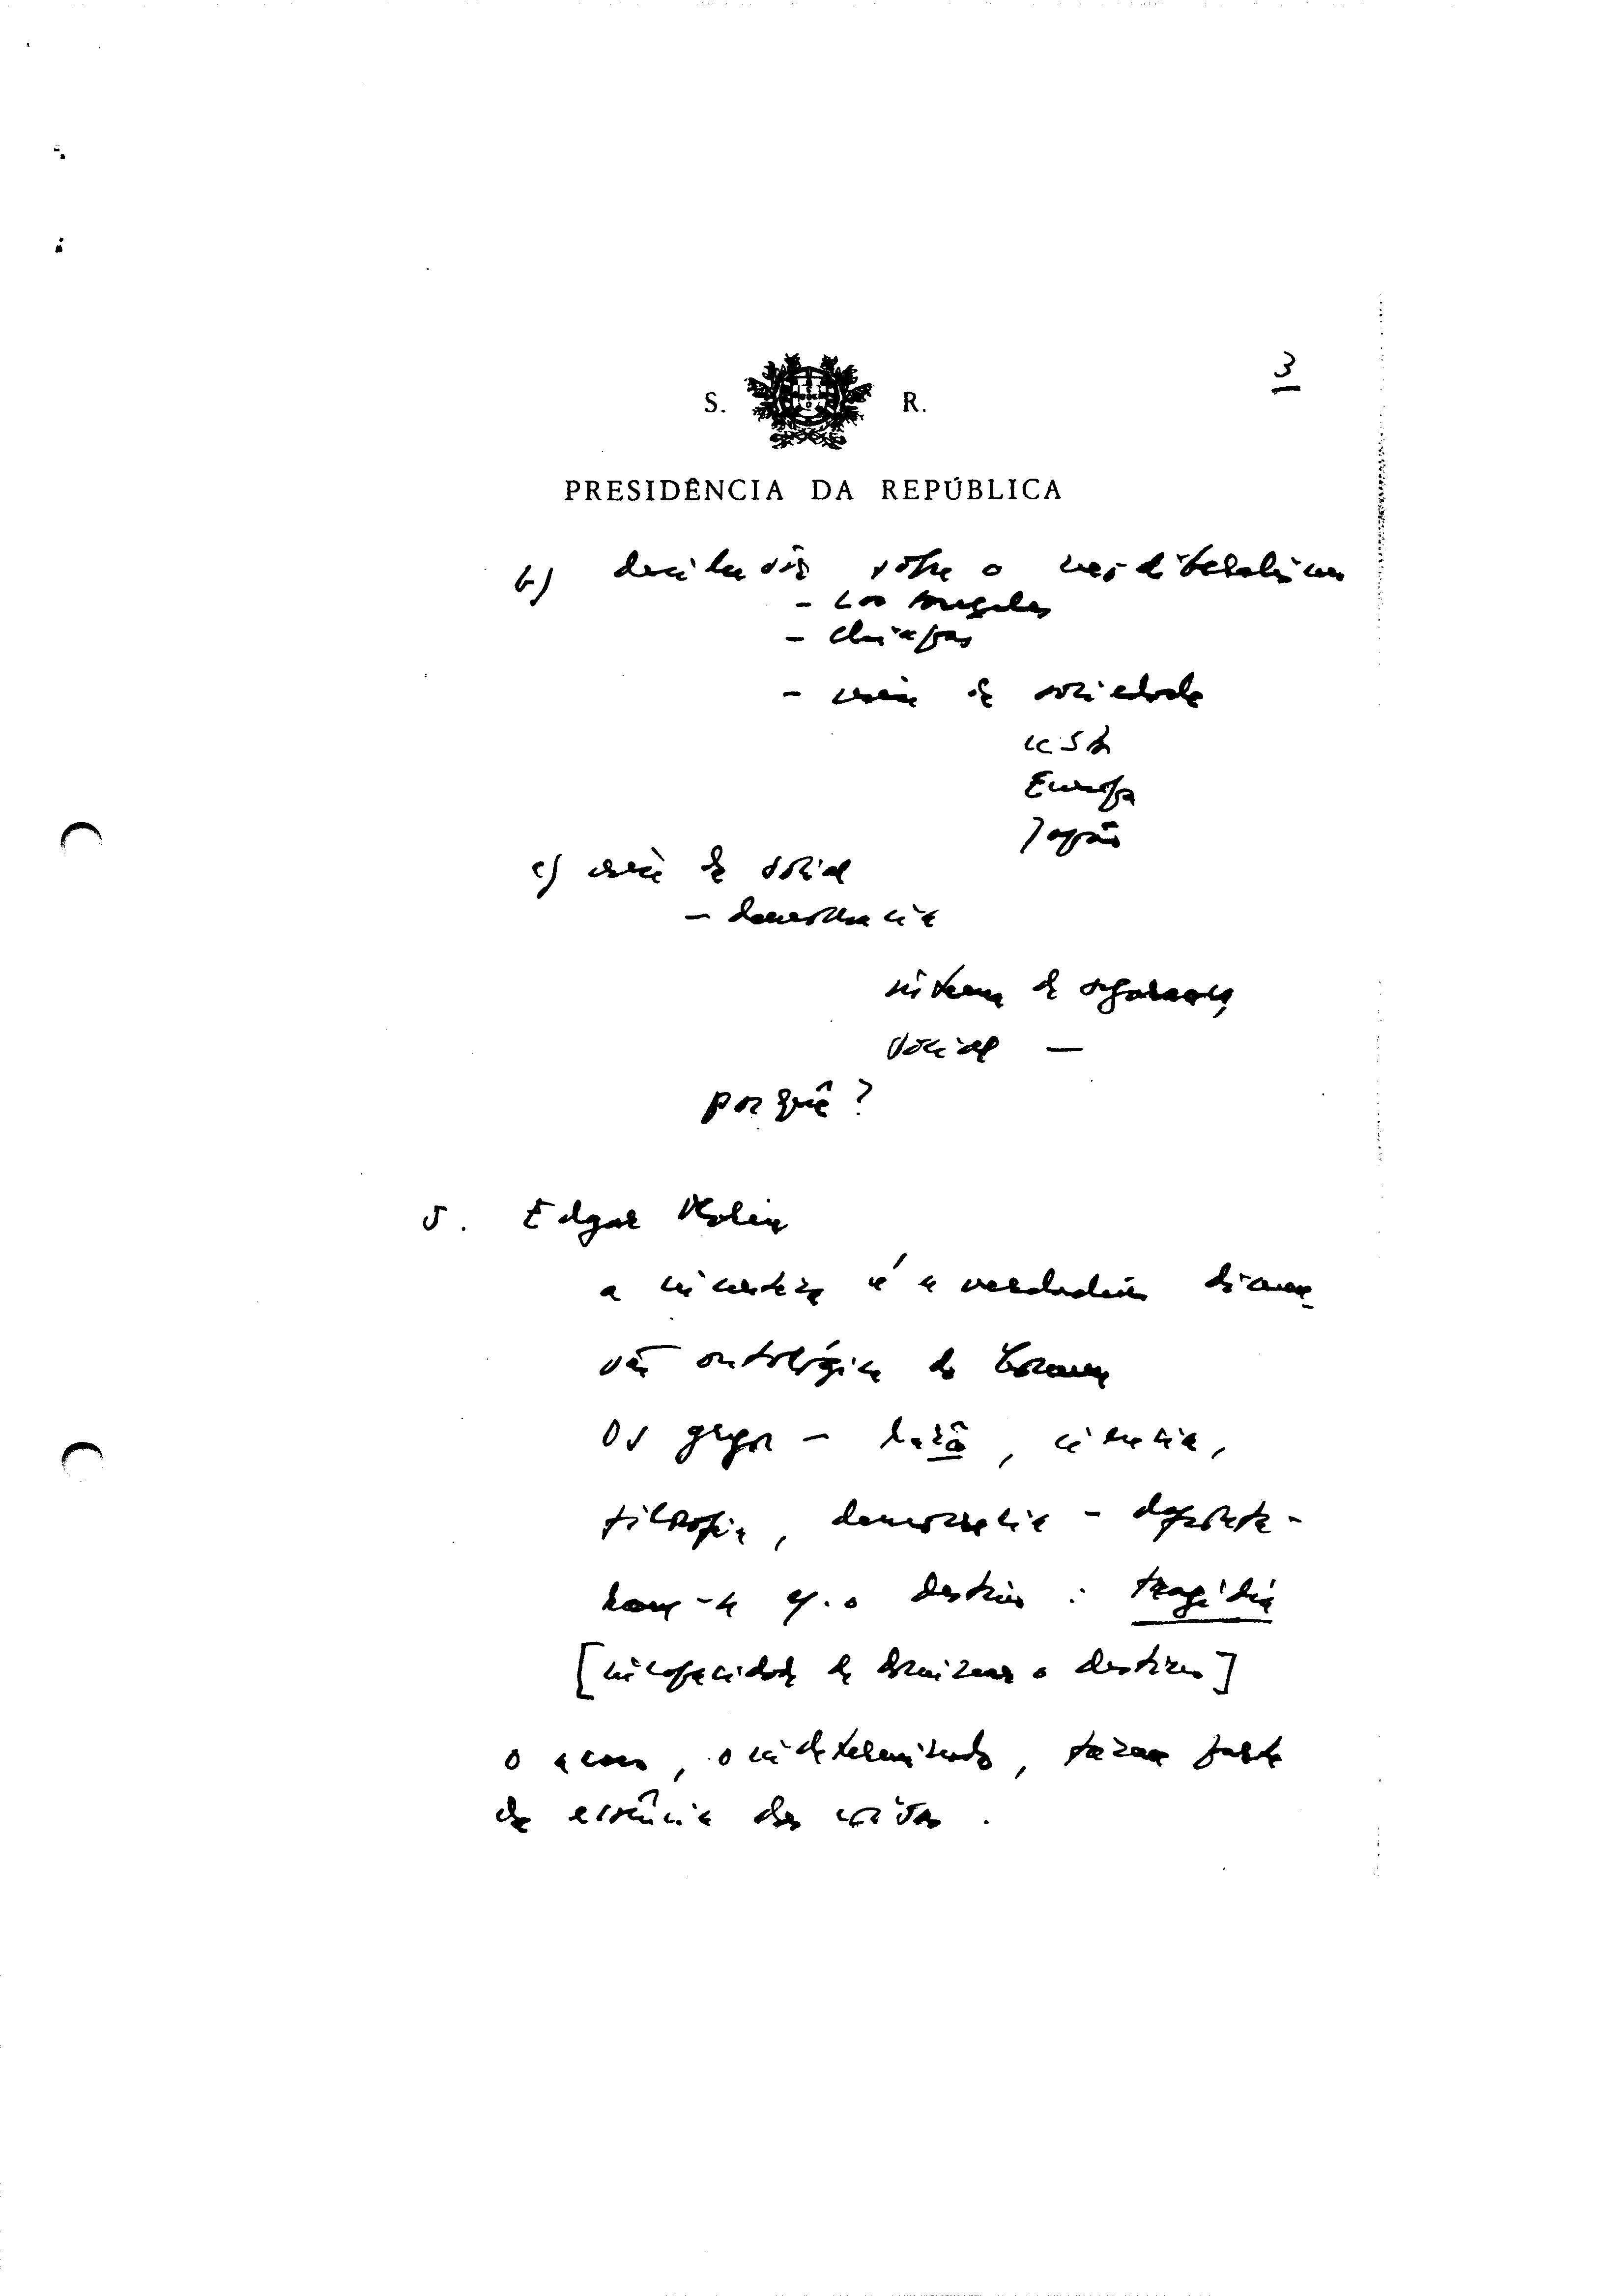 3
S. R.
PRESIDÊNCIA DA REPÚBLICA
b) desilusão sobre o neo-liberalismo
- Los Angeles
- Chiapas
- crise de sociedade
USA
Europa
Japão
c) crise do social
- democracia
sistema de segurança
social —
porquê?
5. Edgar Morin
a incerteza é a verdadeira dimen-
são ontológica do homem
Os gregos - razão, ciência,
filosofia, democracia -
o destino : tragédia
[incapacidade de dominar o destino]
o acaso, o indeterminado, fazem parte
da essência das coisas .